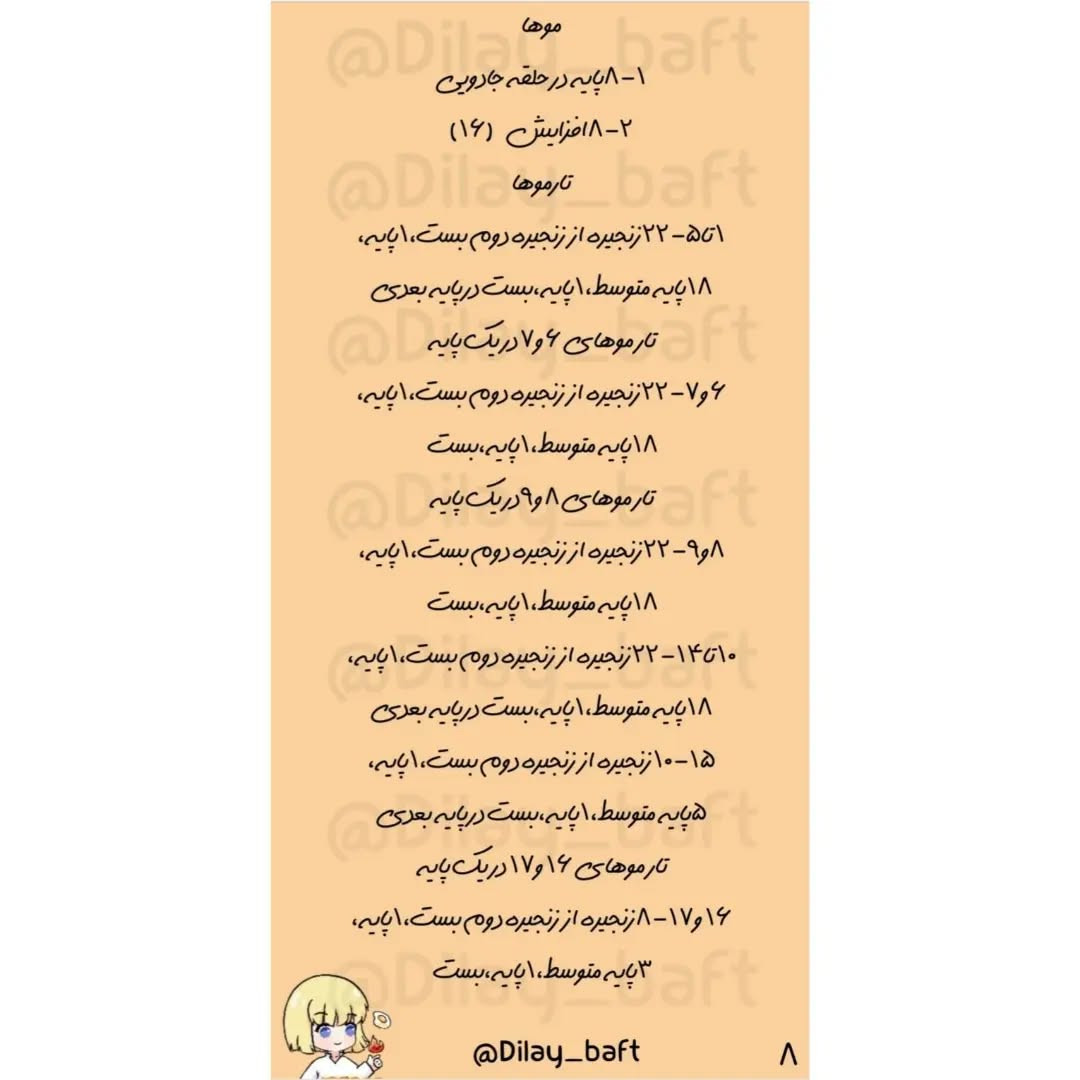 موها
۱-۸پایه در حلقه جادویی
۲-۸افزایش (۱۶)
تارموها
۱تا۵-۲۲زنجیره از زنجیره دوم بست،۱پایه،
۱۸پایه متوسط،۱پایه،بست درپایه بعدی
تارموهای ۶و۷دریک پایه
۶و۷-۲۲زنجیره از زنجیره دوم بست،۱پایه،
۱۸پایه متوسط،۱پایه،بست
تارموهای ۸و۹دریک پایه
۸و۹-۲۲زنجیره از زنجیره دوم بست،۱پایه،
۱۸پایه متوسط،۱پایه،بست
۱۰تا۱۴-۲۲زنجیره از زنجیره دوم بست،۱پایه،
۱۸پایه متوسط،۱پایه،بست درپایه بعدی
۱۵-۱۰زنجیره از زنجیره دوم بست،۱پایه،
۵پایه متوسط،۱پایه،بست درپایه بعدی
تارموهای ۱۶و۱۷دریک پایه
۱۶و۱۷-۸زنجیره از زنجیره دوم بست،۱پایه،
۳پایه متوسط،۱پایه،بست
@Dilay_baft
۸